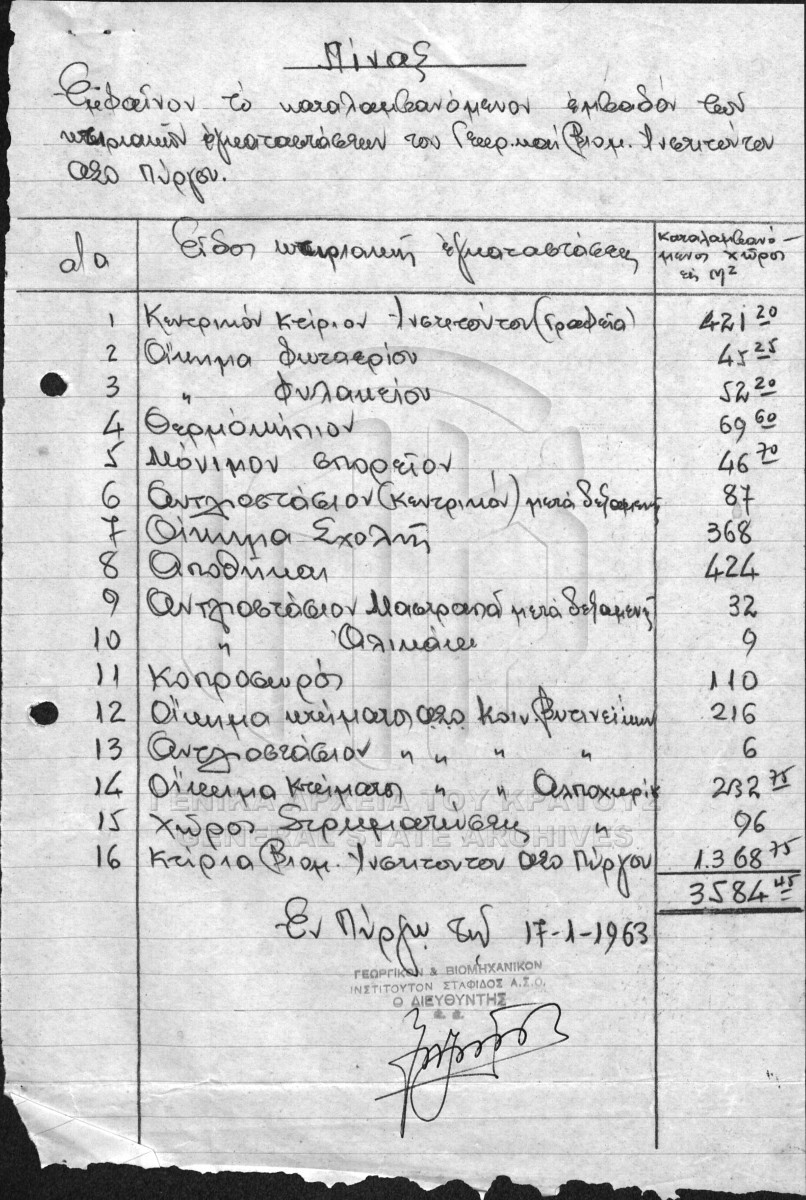 Πίναξ
Ἐμφαῖνον τὸ καταλαμβανόμενον ἐμβαδὸν τῶν
κτιριακῶν ἐγκαταστάσεων τοῦ Γεωρ. καί Βιομ. Ἰνστιτούτου
ΑΣΟ Πύργου.
α/α Εἶδος κτιριακῆς ἐγκαταστάσεως Καταλαμβανό-
μενος χῶρος
εἰς M²
1 Κεντρικόν Κτίριον Ἰνστιτούτου (Γραφεῖα) 421 20
2 Οἴκημα Φωταερίου 45 25
3 " Φυλακείου 52 20
4 Θερμοκήπιον 69 60
5 Μόνιμον σπορεῖον 46 70
6 Ἀντλιοστάσιον (Κεντρικόν) μετά δεξαμενῆς 87
7 Οἴκημα Σχολῆς 368
8 Ἀποθῆκαι 424
9 Ἀντλιοστάσιον Μαστραπᾶ μετά δεξαμενῆς 32
10 " 9
11 Κοπροσωρός 110
12 Οἴκημα κτήματος ΑΣΟ Κοιν. Βυτινεΐκων 216
13 Ἀντλιοστάσιον " " " " 6
14 Οἴκημα Κτήματος " " 232 75
15 Χῶρος " 96
16 Κτίρια Βιομ. Ἰνστιτούτου ΑΣΟ Πύργου 1.368 75
3584 45
Ἐν Πύργῳ τῇ 17-1-1963
ΓΕΩΡΓΙΚΟΝ & ΒΙΟΜΗΧΑΝΙΚΟΝ
ΙΝΣΤΙΤΟΥΤΟΝ ΣΤΑΦΙΔΟΣ Α.Σ.Ο.
Ο ΔΙΕΥΘΥΝΤΗΣ
ΓΕΝΙΚΑ ΑΡΧΕΙΑ ΤΟΥ ΚΡΑΤΟΥΣ
GENERAL STATE ARCHIVES